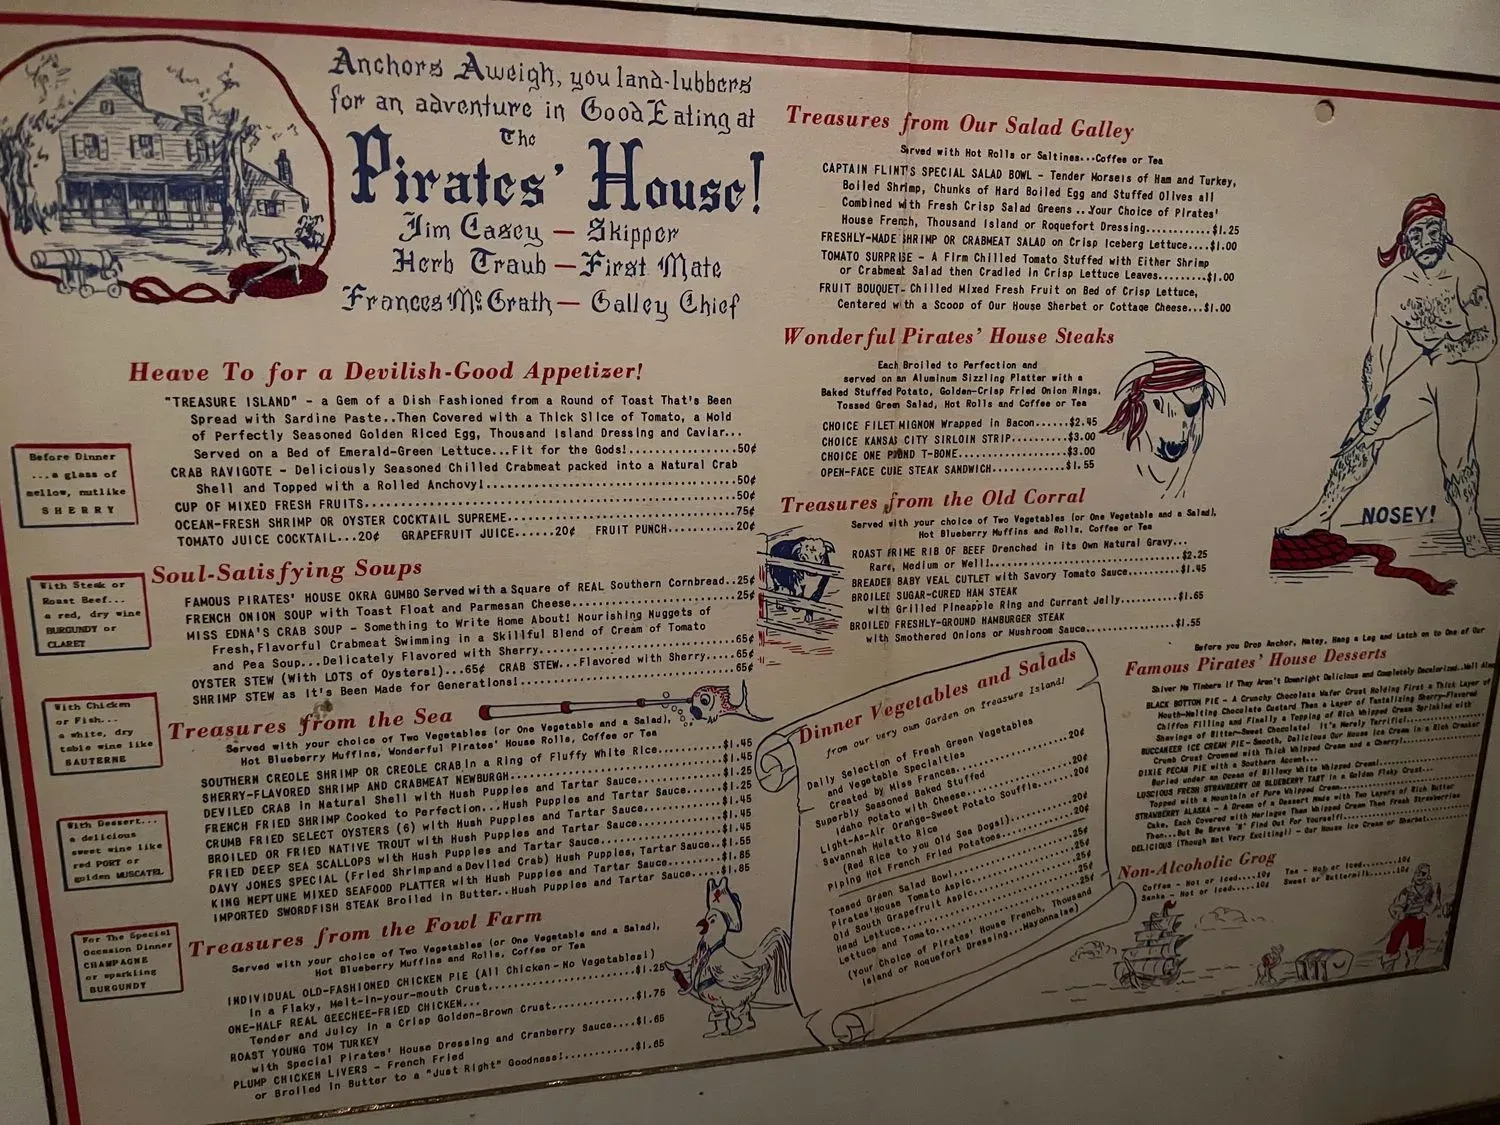 Anchors Aweigh, you land-lubbers
for an adventure in Good Eating at
The
Pirates' House!
Jim Casey — Skipper
Herb Traub — First Mate
Frances McGrath — Galley Chief
Heave To for a Devilish-Good Appetizer!
"TREASURE ISLAND" - a Gem of a Dish Fashioned from a Round of Toast That's Been
Spread with Sardine Paste..Then Covered with a Thick Slice of Tomato, a Mold
of Perfectly Seasoned Golden Riced Egg, Thousand Island Dressing and Caviar...
Served on a Bed of Emerald-Green Lettuce...Fit for the Gods!...50¢
CRAB RAVIGOTE - Deliciously Seasoned Chilled Crabmeat packed into a Natural Crab
Shell and Topped with a Rolled Anchovy!...50¢
CUP OF MIXED FRESH FRUITS...50¢
OCEAN-FRESH SHRIMP OR OYSTER COCKTAIL SUPREME...75¢
TOMATO JUICE COCKTAIL...20¢ GRAPEFRUIT JUICE......20¢ FRUIT PUNCH...20¢
Before Dinner
...a glass of
mellow, nutlike
SHERRY
Soul-Satisfying Soups
FAMOUS PIRATES' HOUSE OKRA GUMBO Served with a Square of REAL Southern Cornbread..25¢
FRENCH ONION SOUP with Toast Float and Parmesan Cheese...25¢
MISS EDNA'S CRAB SOUP - Something to Write Home About! Nourishing Nuggets of
Fresh, Flavorful Crabmeat Swimming in a Skillful Blend of Cream of Tomato
and Pea Soup...Delicately Flavored with Sherry...65¢
OYSTER STEW (With LOTS of Oysters!)...65¢ CRAB STEW...Flavored with Sherry.....65¢
SHRIMP STEW as It's Been Made for Generations!...65¢
With Steak or
Roast Beef...
a red, dry wine
BURGUNDY or
CLARET
Treasures from the Sea
Served with your choice of Two Vegetables (or One Vegetable and a Salad),
Hot Blueberry Muffins, Wonderful Pirates' House Rolls, Coffee or Tea
SOUTHERN CREOLE SHRIMP OR CREOLE CRAB in a Ring of Fluffy White Rice...$1.45
SHERRY-FLAVORED SHRIMP AND CRABMEAT NEWBURGH...$1.45
DEVILED CRAB in Natural Shell with Hush Puppies and Tartar Sauce...$1.25
FRENCH FRIED SHRIMP Cooked to Perfection...Hush Puppies and Tartar Sauce...$1.25
CRUMB FRIED SELECT OYSTERS (6) with Hush Puppies and Tartar Sauce...$1.45
BROILED OR FRIED NATIVE TROUT with Hush Puppies and Tartar Sauce...$1.45
FRIED DEEP SEA SCALLOPS with Hush Puppies and Tartar Sauce...$1.45
DAVY JONES SPECIAL (Fried Shrimp and a Deviled Crab) Hush Puppies, Tartar Sauce..$1.55
KING NEPTUNE MIXED SEAFOOD PLATTER with Hush Puppies and Tartar Sauce...$1.85
IMPORTED SWORDFISH STEAK Broiled in Butter..Hush Puppies and Tartar Sauce.....$1.65
With Chicken
or Fish...
a white, dry
table wine like
SAUTERNE
With Dessert...
a delicious
sweet wine like
red PORT or
golden MUSCATEL
Treasures from the Fowl Farm
Served with your choice of Two Vegetables (or One Vegetable and a Salad),
Hot Blueberry Muffins and Rolls, Coffee or Tea
INDIVIDUAL OLD-FASHIONED CHICKEN PIE (All Chicken-No Vegetables!)
in a Flaky, Melt-in-your-mouth Crust...$1.25
ONE-HALF REAL GEECHEE-FRIED CHICKEN...
Tender and Juicy in a Crisp Golden-Brown Crust...$1.75
ROAST YOUNG TOM TURKEY
with Special Pirates' House Dressing and Cranberry Sauce....$1.65
PLUMP CHICKEN LIVERS - French Fried
or Broiled in Butter to a "Just Right" Goodness!...$1.65
For The Special
Occasion Dinner
CHAMPAGNE
or sparkling
BURGUNDY
Treasures from Our Salad Galley
Served with Hot Rolls or Saltines...Coffee or Tea
CAPTAIN FLINT'S SPECIAL SALAD BOWL - Tender Morsels of Ham and Turkey,
Boiled Shrimp, Chunks of Hard Boiled Egg and Stuffed Olives all
Combined with Fresh Crisp Salad Greens...Your Choice of Pirates'
House French, Thousand Island or Roquefort Dressing...$1.25
FRESHLY-MADE SHRIMP OR CRABMEAT SALAD on Crisp Iceberg Lettuce....$1.00
TOMATO SURPRISE - A Firm Chilled Tomato Stuffed with Either Shrimp
or Crabmeat Salad then Cradled in Crisp Lettuce Leaves...$1.00
FRUIT BOUQUET- Chilled Mixed Fresh Fruit on Bed of Crisp Lettuce,
Centered with a Scoop of Our House Sherbet or Cottage Cheese...$1.00
Wonderful Pirates' House Steaks
Each Broiled to Perfection and
served on an Aluminum Sizzling Platter with a
Baked Stuffed Potato, Golden-Crisp Fried Onion Rings,
Tossed Green Salad, Hot Rolls and Coffee or Tea
CHOICE FILET MIGNON Wrapped in Bacon......$2.45
CHOICE KANSAS CITY SIRLOIN STRIP...$3.00
CHOICE ONE POUND T-BONE...$3.00
OPEN-FACE CUBE STEAK SANDWICH...$1.55
NOSEY!
Treasures from the Old Corral
Served with your choice of Two Vegetables (or One Vegetable and a Salad),
Hot Blueberry Muffins and Rolls, Coffee or Tea
ROAST PRIME RIB OF BEEF Drenched in Its Own Natural Gravy...
Rare, Medium or Well!...$2.25
BREADED BABY VEAL CUTLET with Savory Tomato Sauce...$1.45
BROILED SUGAR-CURED HAM STEAK
with Grilled Pineapple Ring and Currant Jelly...$1.65
BROILED FRESHLY-GROUND HAMBURGER STEAK
with Smothered Onions or Mushroom Sauce...$1.55
Dinner Vegetables and Salads
from our very own Garden on Treasure Island!
Daily Selection of Fresh Green Vegetables
and Vegetable Specialties
Created by Miss Frances...20¢
Superbly Seasoned Baked Stuffed
Idaho Potato with Cheese...20¢
Light-As-Air Orange-Sweet Potato Souffle..20¢
Savannah Mulatto Rice
(Red Rice to you Old Sea Dogs!)...20¢
Piping Hot French Fried Potatoes...20¢
Tossed Green Salad Bowl...25¢
Pirates' House Tomato Aspic...25¢
Old South Grapefruit Aspic...25¢
Head Lettuce...25¢
Lettuce and Tomato...25¢
(Your Choice of Pirates' House French, Thousand
Island or Roquefort Dressing...Mayonnaise)
Before you Drop Anchor, Matey, Hang a Leg and Latch on to One of Our
Famous Pirates' House Desserts
Shiver Me Timbers if They Aren't Downright Delicious and Completely Decalorized..Well
BLACK BOTTOM PIE - A Crunchy Chocolate Wafer Crust Holding First a Thick Layer of
Mouth-Melting Chocolate Custard Then a Layer of Tantalizing Sherry-Flavored
Chiffon Filling and Finally a Topping of Rich Whipped Cream Sprinkled with
Shavings of Bitter-Sweet Chocolate! It's Merely Terrific!
BUCCANEER ICE CREAM PIE - Smooth, Delicious Our House Ice Cream in a Rich Cracker
Crumb Crust Crowned with Thick Whipped Cream and a Cherry!
DIXIE PECAN PIE with a Southern Accent...
Buried under an Ocean of Billowy White Whipped Cream!
LUSCIOUS FRESH STRAWBERRY OR BLUEBERRY TART in a Golden Flaky Crust...
Topped with a Mountain of Pure Whipped Cream
STRAWBERRY ALASKA - A Dream of a Dessert Made with Two Layers of Rich Butter
Cake, Each Covered with Meringue Then Whipped Cream Then Fresh Strawberries
Then...But Be Brave 'n' Find Out For Yourself!
DELICIOUS (Though Not Very Exciting!) - Our House Ice Cream or Sherbet
Non-Alcoholic Grog
Coffee - Hot or Iced.....10¢ Tea - Hot or Iced...10¢
Sanka - Hot or Iced.....10¢ Sweet or Buttermilk...10¢